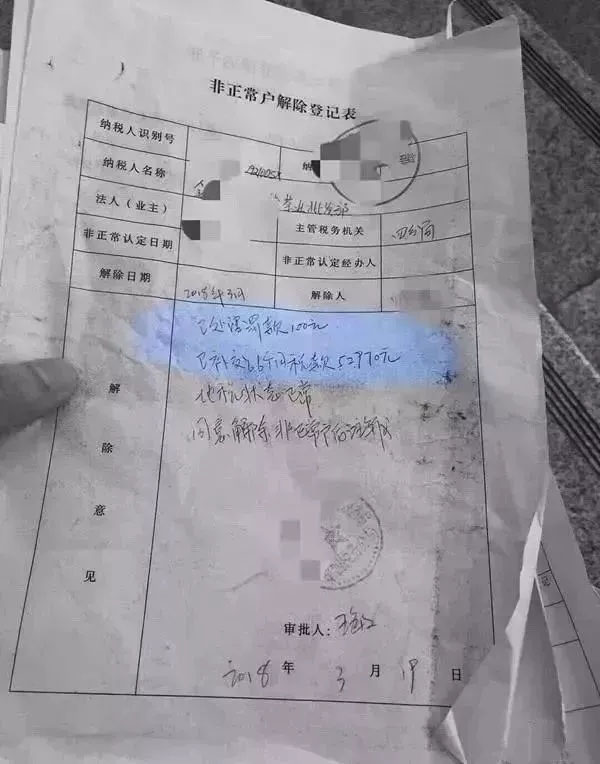 非正常户解除登记表
纳税人识别号
纳税人名称
法人（业主）
主管税务机关 四分局
非正常认定日期
非正常认定经办人
解除日期 2018年3月
解除人
已处罚款100元
已补交66个月税款52970元
状态正常
同意解除非正常户后注销
解除意见
审批人：
2018 年 3 月 19 日